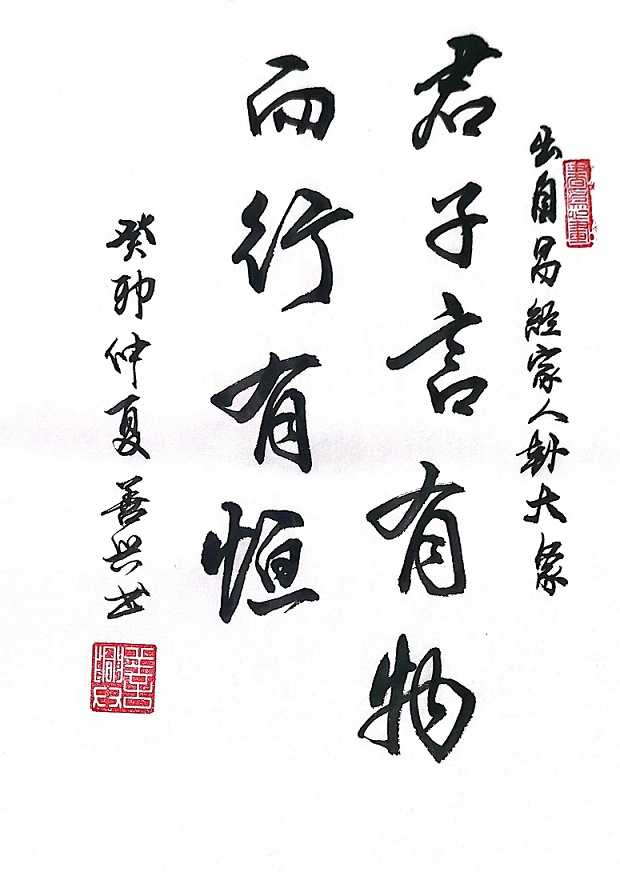 出自易经家人卦大象
君子言有物
而行有恒
癸卯仲夏善兴书